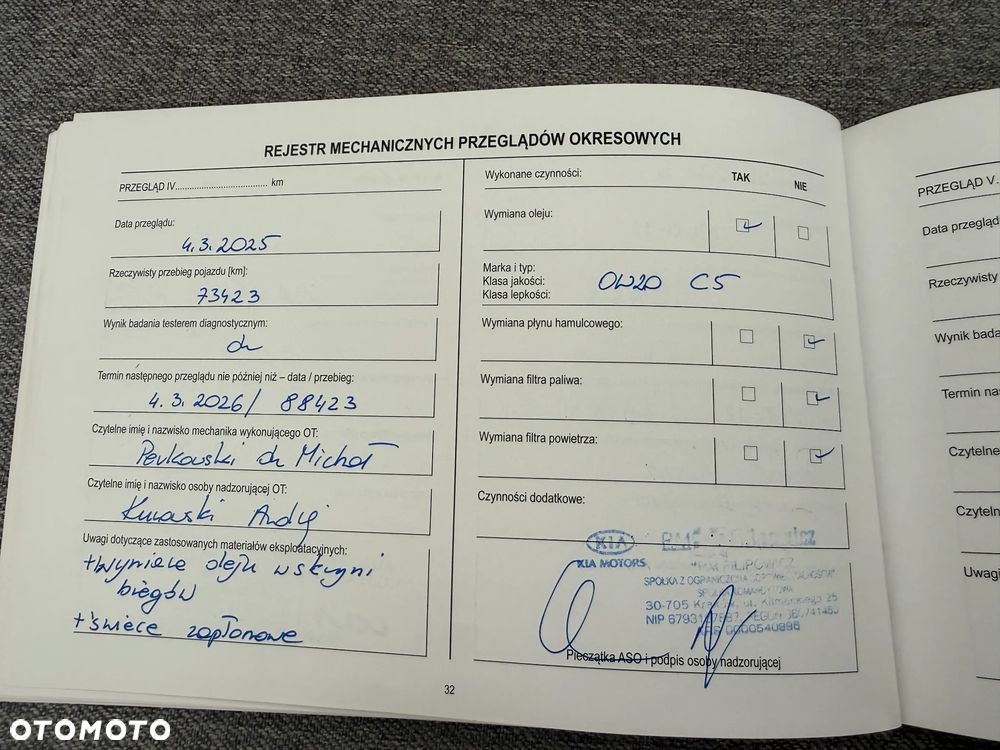 REJESTR MECHANICZNYCH PRZEGLĄDÓW OKRESOWYCH
PRZEGLĄD IV..................................... km
Data przeglądu:
4.3.2025
Rzeczywisty przebieg pojazdu [km]:
73423
Wynik badania testerem diagnostycznym:
Termin następnego przeglądu nie później niż – data / przebieg:
4.3.2026/ 88423
Czytelne imię i nazwisko mechanika wykonującego OT:
Michał
Czytelne imię i nazwisko osoby nadzorującej OT:
Uwagi dotyczące zastosowanych materiałów eksploatacyjnych:
oleju w skrzyni
biegów
+ świece zapłonowe
Wykonane czynności:
TAK
NIE
Wymiana oleju:
Marka i typ:
Klasa jakości:
Klasa lepkości:
0W20 C5
Wymiana płynu hamulcowego:
Wymiana filtra paliwa:
Wymiana filtra powietrza:
Czynności dodatkowe:
KIA
KIA MOTORS
FILIPOWICZ
SPÓŁKA Z OGRANICZONĄ
30-705 Kraków, ul.
NIP
KRS 0000540896
Pieczątka ASO i podpis osoby nadzorującej
32
PRZEGLĄD V.
Data przegląd
Rzeczywisty
Wynik bada
Termin na
Czytelne
Czyteln
Uwagi
OTOMOTO